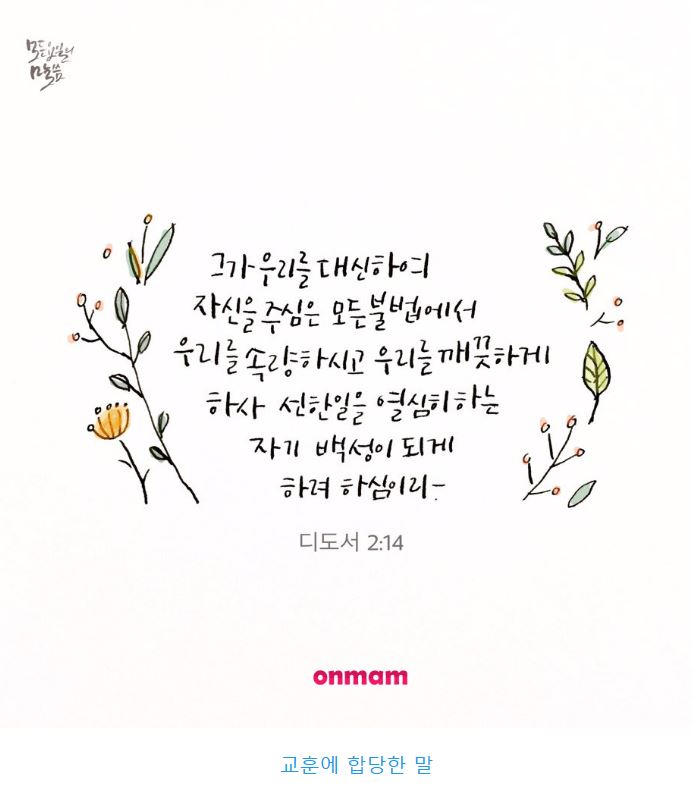 모든요일의
말씀
그가 우리를 대신하여
자신을 주심은 모든 불법에서
우리를 속량하시고 우리를 깨끗하게
하사 선한일을 열심히 하는
자기 백성이 되게
하려 하심이라-
디도서 2:14
onmam
교훈에 합당한 말